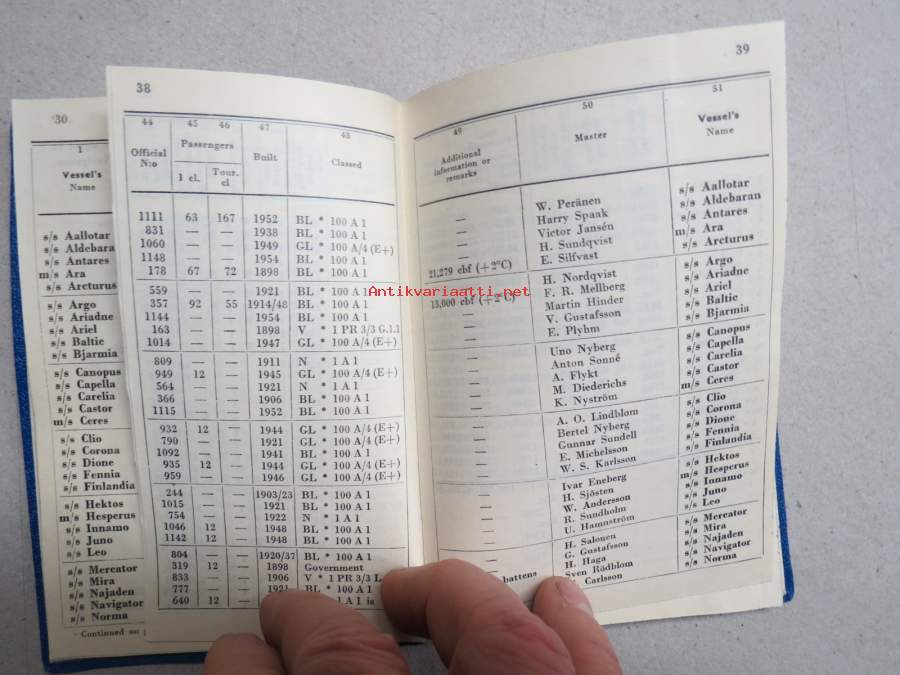 30
1
Vessel's
Name
s/s Aallotar
s/s Aldebara
s/s Antares
m/s Ara
s/s Arcturus
s/s Argo
s/s Ariadne
s/s Ariel
s/s Baltic
s/s Bjarmia
s/s Canopus
s/s Capella
s/s Carelia
s/s Castor
m/s Ceres
s/s Clio
s/s Corona
s/s Dione
s/s Fennia
s/s Finlandia
s/s Hektos
m/s Hesperus
s/s Innamo
s/s Juno
s/s Leo
s/s Mercator
s/s Mira
s/s Najaden
s/s Navigator
s/s Norma
Continued on
38
44 45 46 47 48
Official N:o Passengers Built Classed
1 cl. Tour. cl
1111 63 167 1952 BL * 100 A 1
831 — — 1938 BL * 100 A 1
1060 — — 1949 GL * 100 A/4 (E+)
1148 — — 1954 BL * 100 A 1
178 67 72 1898 BL * 100 A 1
559 — — 1921 BL * 100 A 1
357 92 55 1914/48 BL * 100 A 1
1144 — — 1954 BL * 100 A 1
163 — — 1898 V * 1 PR 3/3 G.1.1
1014 — — 1947 GL * 100 A/4 (E+)
809 — — 1911 N * 1 A 1
949 12 — 1945 GL * 100 A/4 (E+)
564 — — 1921 N * 1 A 1
366 — — 1906 BL * 100 A 1
1115 — — 1952 BL * 100 A 1
932 12 — 1944 GL * 100 A/4 (E+)
790 — — 1921 GL * 100 A/4 (E+)
1092 — — 1941 BL * 100 A 1
935 12 — 1944 GL * 100 A/4 (E+)
959 — — 1946 GL * 100 A/4 (E+)
244 — — 1903/23 BL * 100 A 1
1015 — — 1921 BL * 100 A 1
754 — — 1922 N * 1 A 1
1046 12 — 1948 BL * 100 A 1
1142 12 — 1948 BL * 100 A 1
804 — — 1920/37 BL * 100 A 1
319 12 — 1898 Government
833 — — 1906 V * 1 PR 3/3 L
777 — — 1921 BL * 100 A 1
640 12 — 1 A 1 is
39
49 50 51
Additional information or remarks Master Vessel's Name
— W. Peränen s/s Aallotar
— Harry Spaak s/s Aldebaran
— Victor Jansén s/s Antares
— H. Sundqvist m/s Ara
21,279 cbf (+2°C) E. Silfvast s/s Arcturus
— H. Nordqvist s/s Argo
13,000 cbf (+2°C) F. R. Mellberg s/s Ariadne
— Martin Hinder s/s Ariel
— V. Gustafsson s/s Baltic
— E. Plyhm s/s Bjarmia
— Uno Nyberg s/s Canopus
— Anton Sonné s/s Capella
— A. Flykt s/s Carelia
— M. Diederichs s/s Castor
— K. Nyström m/s Ceres
— A. O. Lindblom s/s Clio
— Bertel Nyberg s/s Corona
— Gunnar Sundell s/s Dione
— E. Michelsson s/s Fennia
— W. S. Karlsson s/s Finlandia
— Ivar Eneberg s/s Hektos
— H. Sjösten m/s Hesperus
— W. Andersson s/s Innamo
— R. Sundholm s/s Juno
— U. Hamnström s/s Leo
— H. Salonen s/s Mercator
— G. Gustafsson s/s Mira
— H. Haga s/s Najaden
battens Sven Rödblom s/s Navigator
Carlsson s/s Norma
Antikvariaatti.net